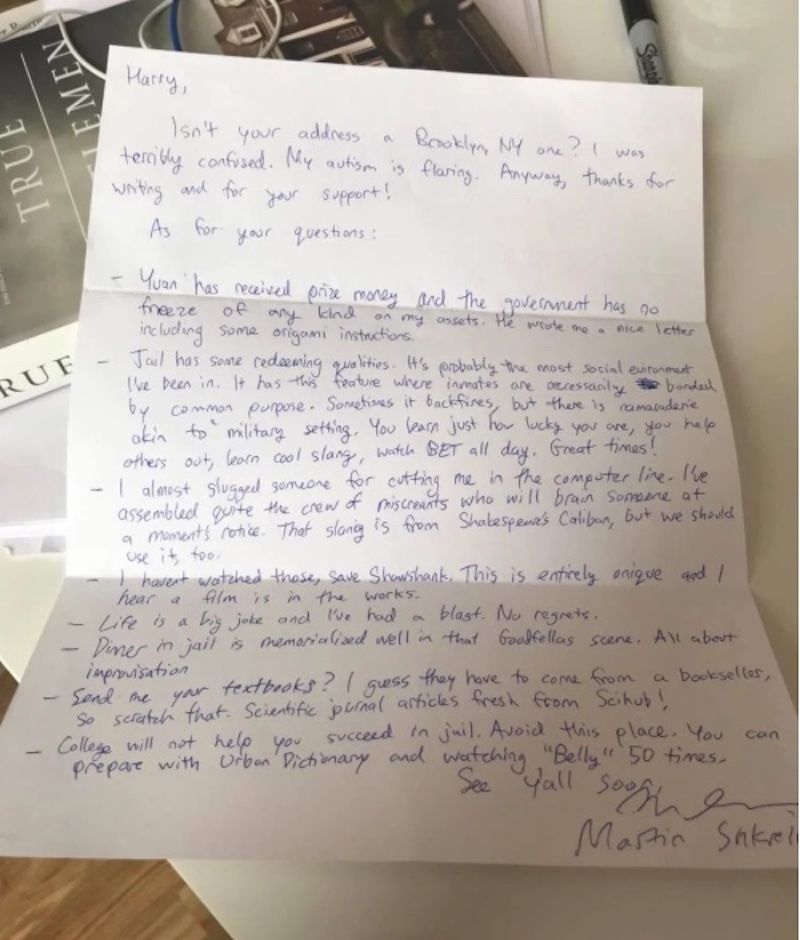 TRUE
ELEMEN
RUE
Sharpie
Harry,
Isn't your address a Brooklyn, NY one? I was
terribly confused. My autism is flaring. Anyway, thanks for
writing and for your support!
As for your questions:
- Yuan has received prize money and the government has no
freeze of any kind on my assets. He wrote me a nice letter
including some origami instructions.
- Jail has some redeeming qualities. It's probably the most social evironment
I've been in. It has this feature where inmates are necessarily bonded
by common purpose. Sometimes it backfires, but there is camaraderie
akin to military setting. You learn just how lucky you are, you help
others out, learn cool slang, watch BET all day. Great times!
- I almost slugged someone for cutting me in the computer line. I've
assembled quite the crew of miscreants who will brain someone at
a moment's notice. That slang is from Shakespeare's Caliban, but we should
use it, too.
- I haven't watched those, save Shawshank. This is entirely unique and I
hear a film is in the works.
- Life is a big joke and I've had a blast. No regrets.
- Dinner in jail is memorialized well in that Goodfellas scene. All about
improvisation
- Send me your textbooks? I guess they have to come from a bookseller,
so scratch that. Scientific journal articles fresh from Scihub!
- College will not help you succeed in jail. Avoid this place. You can
prepare with Urban Dictionary and watching "Belly" 50 times.
See y'all soon
Martin Shkreli